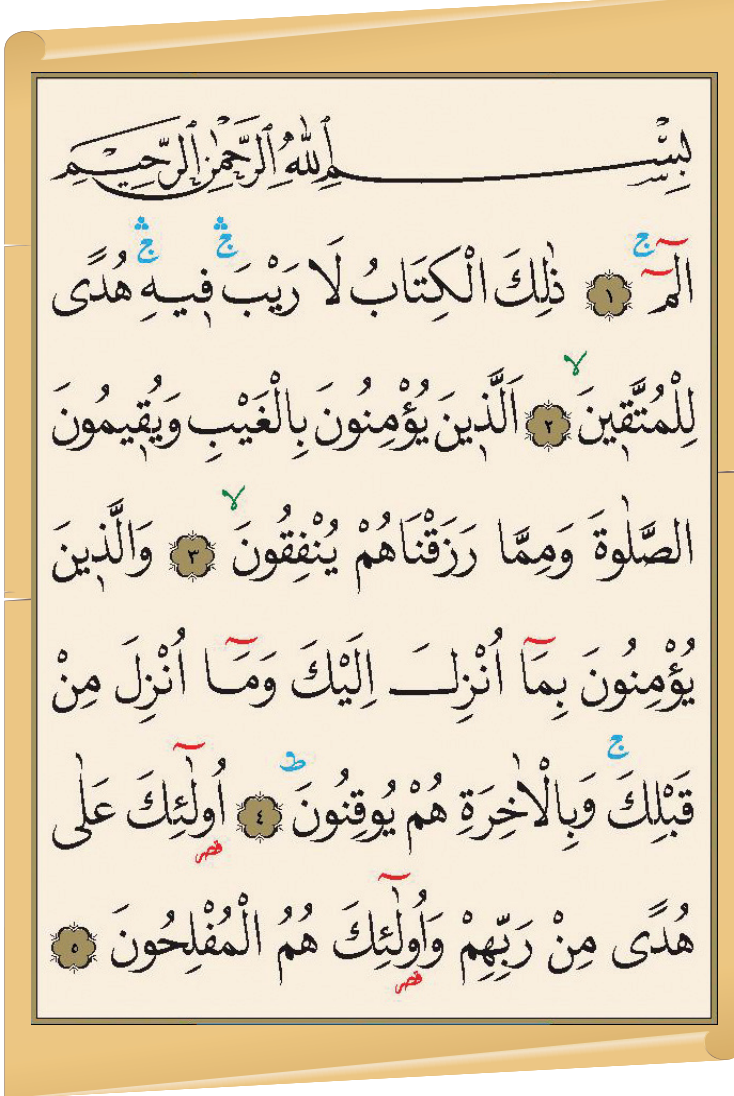 بِسْمِ اللّٰهِ الرَّحْمٰنِ الرَّحِيمِ
الٓمٓ ۚ ﴿١﴾ ذٰلِكَ الْكِتَابُ لَا رَيْبَ ۛ فِيهِ ۛ هُدًى
لِلْمُتَّقِينَ ۙ ﴿٢﴾ اَلَّذِينَ يُؤْمِنُونَ بِالْغَيْبِ وَيُقِيمُونَ
الصَّلٰوةَ وَمِمَّا رَزَقْنَاهُمْ يُنْفِقُونَ ۙ ﴿٣﴾ وَالَّذِينَ
يُؤْمِنُونَ بِمَٓا اُنْزِلَ اِلَيْكَ وَمَٓا اُنْزِلَ مِنْ
قَبْلِكَ ۚ وَبِالْاٰخِرَةِ هُمْ يُوقِنُونَ ؕ ﴿٤﴾ اُولٰٓئِكَ عَلٰى
قصر
هُدًى مِنْ رَبِّهِمْ وَاُولٰٓئِكَ هُمُ الْمُفْلِحُونَ ﴿٥﴾
قصر